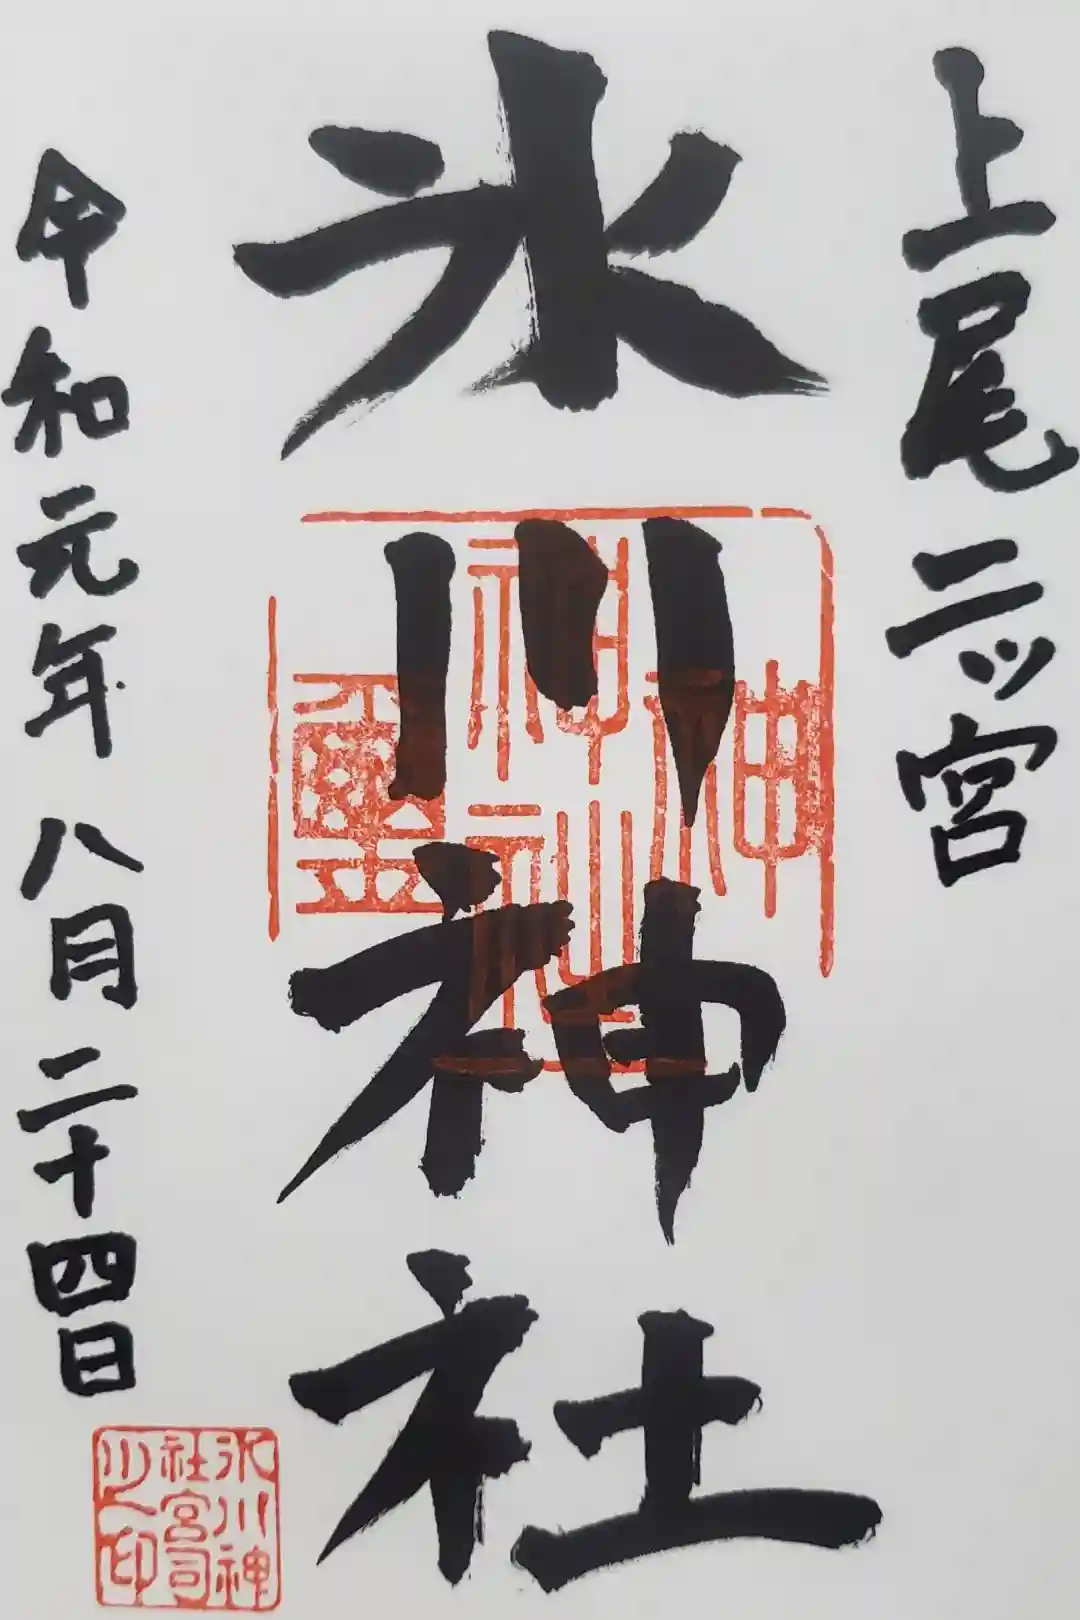 上尾二ッ宮
氷川神社
令和元年八月二十四日
神社
神
璽
氷川神
社宮司
之印